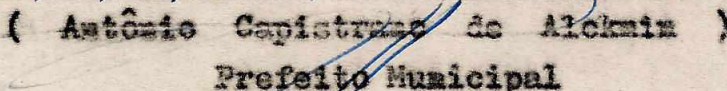 ( Antônio Capistrano de Alckmim )
Prefeito Municipal